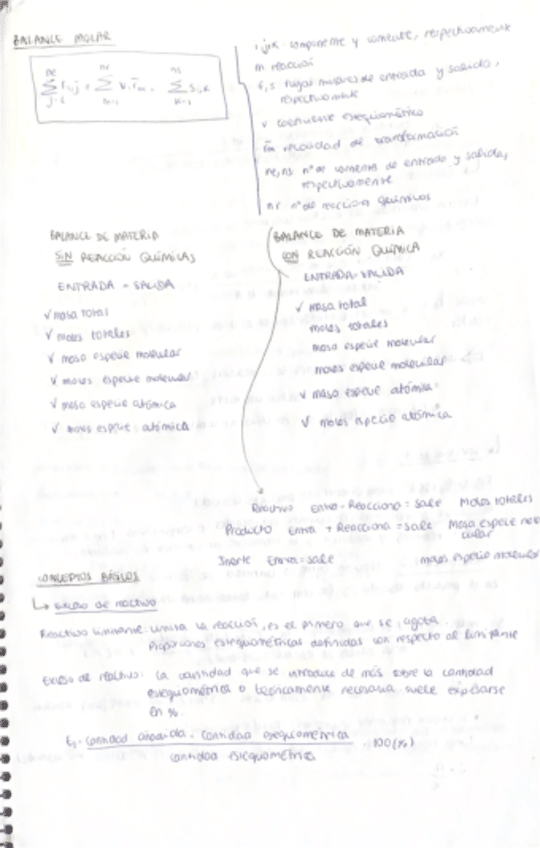 BALANCE MOLAR
i, j, k componente y corriente, respectivamente
m reacción
respectivamente
ν coeficiente estequiométrico
velocidad de transformación
ne, ns nº de corrientes de entrada y salida,
respectivamente
nr nº de reacciones químicas
BALANCE DE MATERIA
SIN REACCIÓN QUÍMICAS
ENTRADA = SALIDA
✓ masa total
✓ moles totales
✓ masa especie molecular
✓ moles especie molecular
✓ masa especie atómica
✓ moles especie atómica
BALANCE DE MATERIA
CON REACCIÓN QUÍMICA
ENTRADA = SALIDA
✓ masa total
moles totales
masa especie molecular
moles especie molecular
✓ masa especie atómica
✓ moles especie atómica
Reactivo Entra - Reacciona = sale Moles totales
Producto Entra + Reacciona = sale Masa especie mole
cular
Inerte Entra = sale moles especie molecular
CONCEPTOS BÁSICOS
↳ exceso de reactivo
Reactivo limitante: limita la reacción, es el primero que se agota.
Proporciones estequiométricas definidas con respecto al limitante
Exceso de reactivo: la cantidad que se introduce de más sobre la cantidad
estequiométrica o teóricamente necesaria suele expresarse
en %.
cantidad añadida - cantidad estequiométrica
cantidad estequiométrica
· 100 (%)